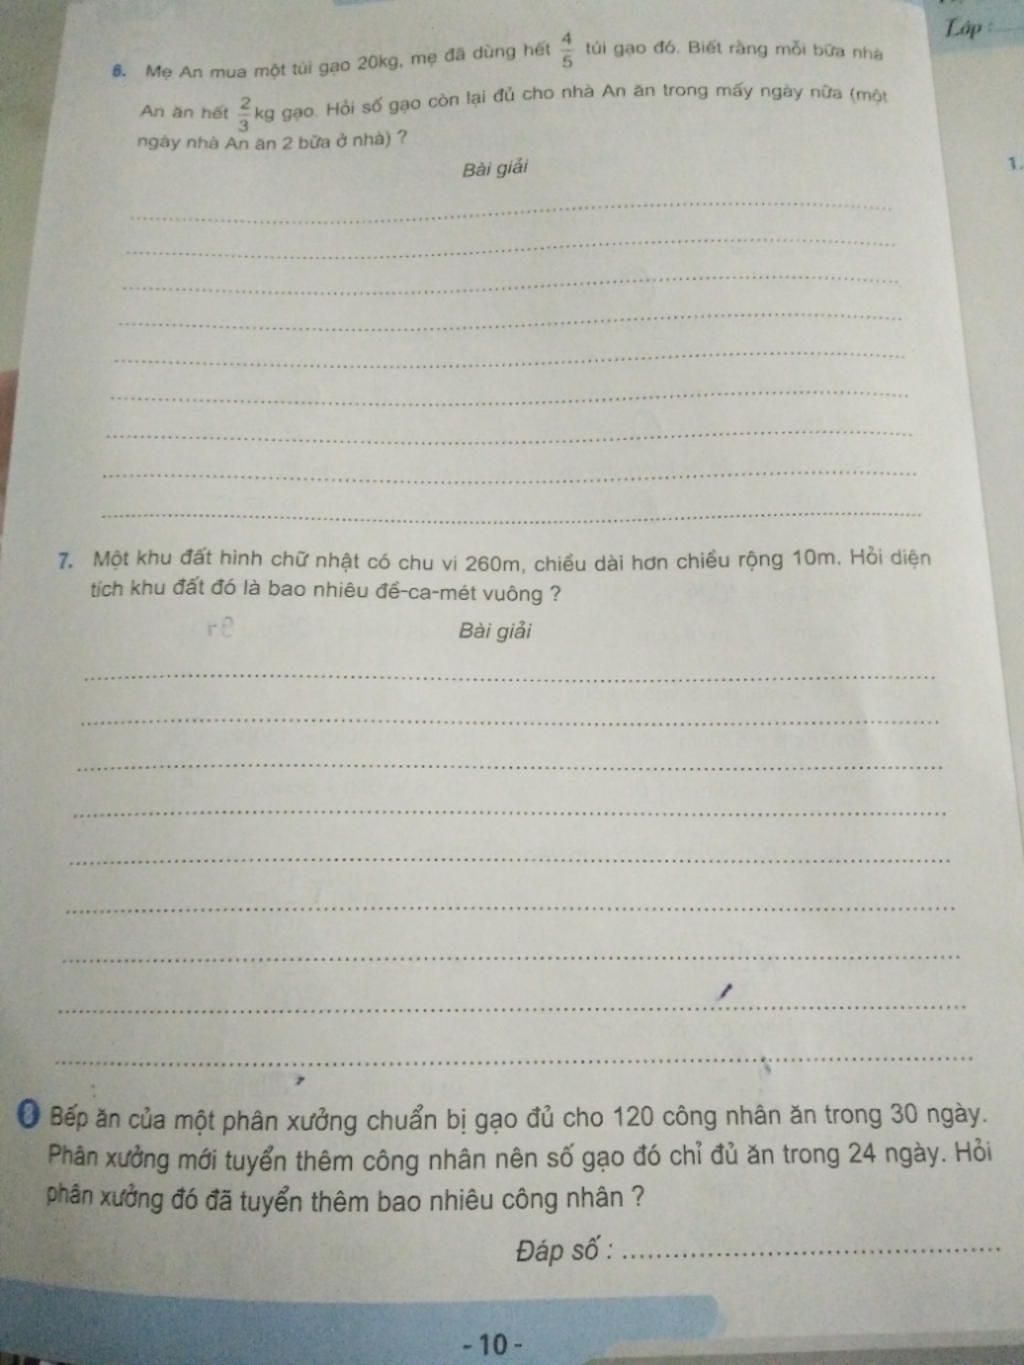 Lớp :
6. Mẹ An mua một túi gạo 20kg, mẹ đã dùng hết 4/5 túi gạo đó. Biết rằng mỗi bữa nhà
An ăn hết 2/3 kg gạo. Hỏi số gạo còn lại đủ cho nhà An ăn trong mấy ngày nữa (một
ngày nhà An ăn 2 bữa ở nhà) ?
Bài giải
1.
7. Một khu đất hình chữ nhật có chu vi 260m, chiều dài hơn chiều rộng 10m. Hỏi diện
tích khu đất đó là bao nhiêu đề-ca-mét vuông ?
Bài giải
8 Bếp ăn của một phân xưởng chuẩn bị gạo đủ cho 120 công nhân ăn trong 30 ngày.
Phân xưởng mới tuyển thêm công nhân nên số gạo đó chỉ đủ ăn trong 24 ngày. Hỏi
phân xưởng đó đã tuyển thêm bao nhiêu công nhân ?
Đáp số :
- 10 -